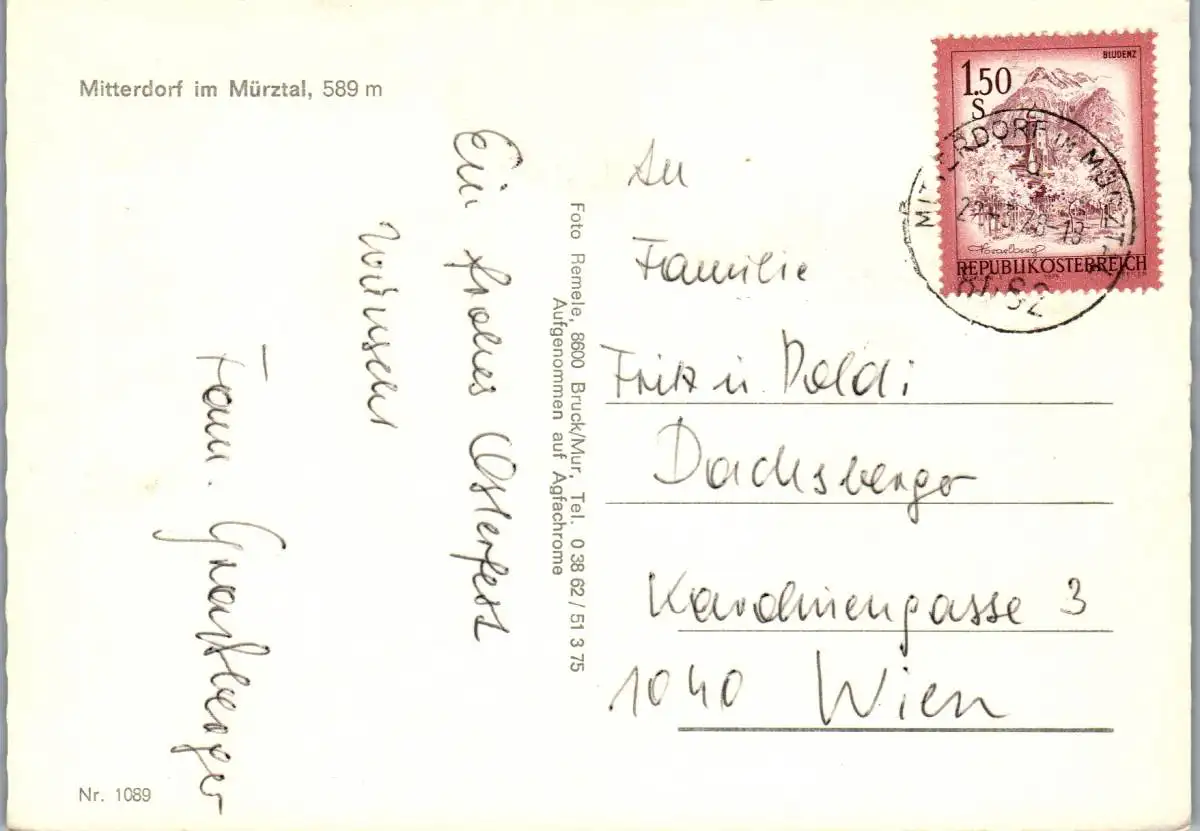 Mitterdorf im Mürztal, 589 m
Ein frohes Osterfest
wünscht
Fam.
Nr. 1089
Foto Remele, 8600 Bruck/Mur, Tel. 0 38 62 / 51 3 75
Aufgenommen auf Agfachrome
BLUDENZ
1.50
S
Vorarlberg
REPUBLIK ÖSTERREICH
MITTERDORF IM MÜRZTAL
An
Familie
Fritz u. Poldi
Dachsberger
Karolinengasse 3
1040 Wien